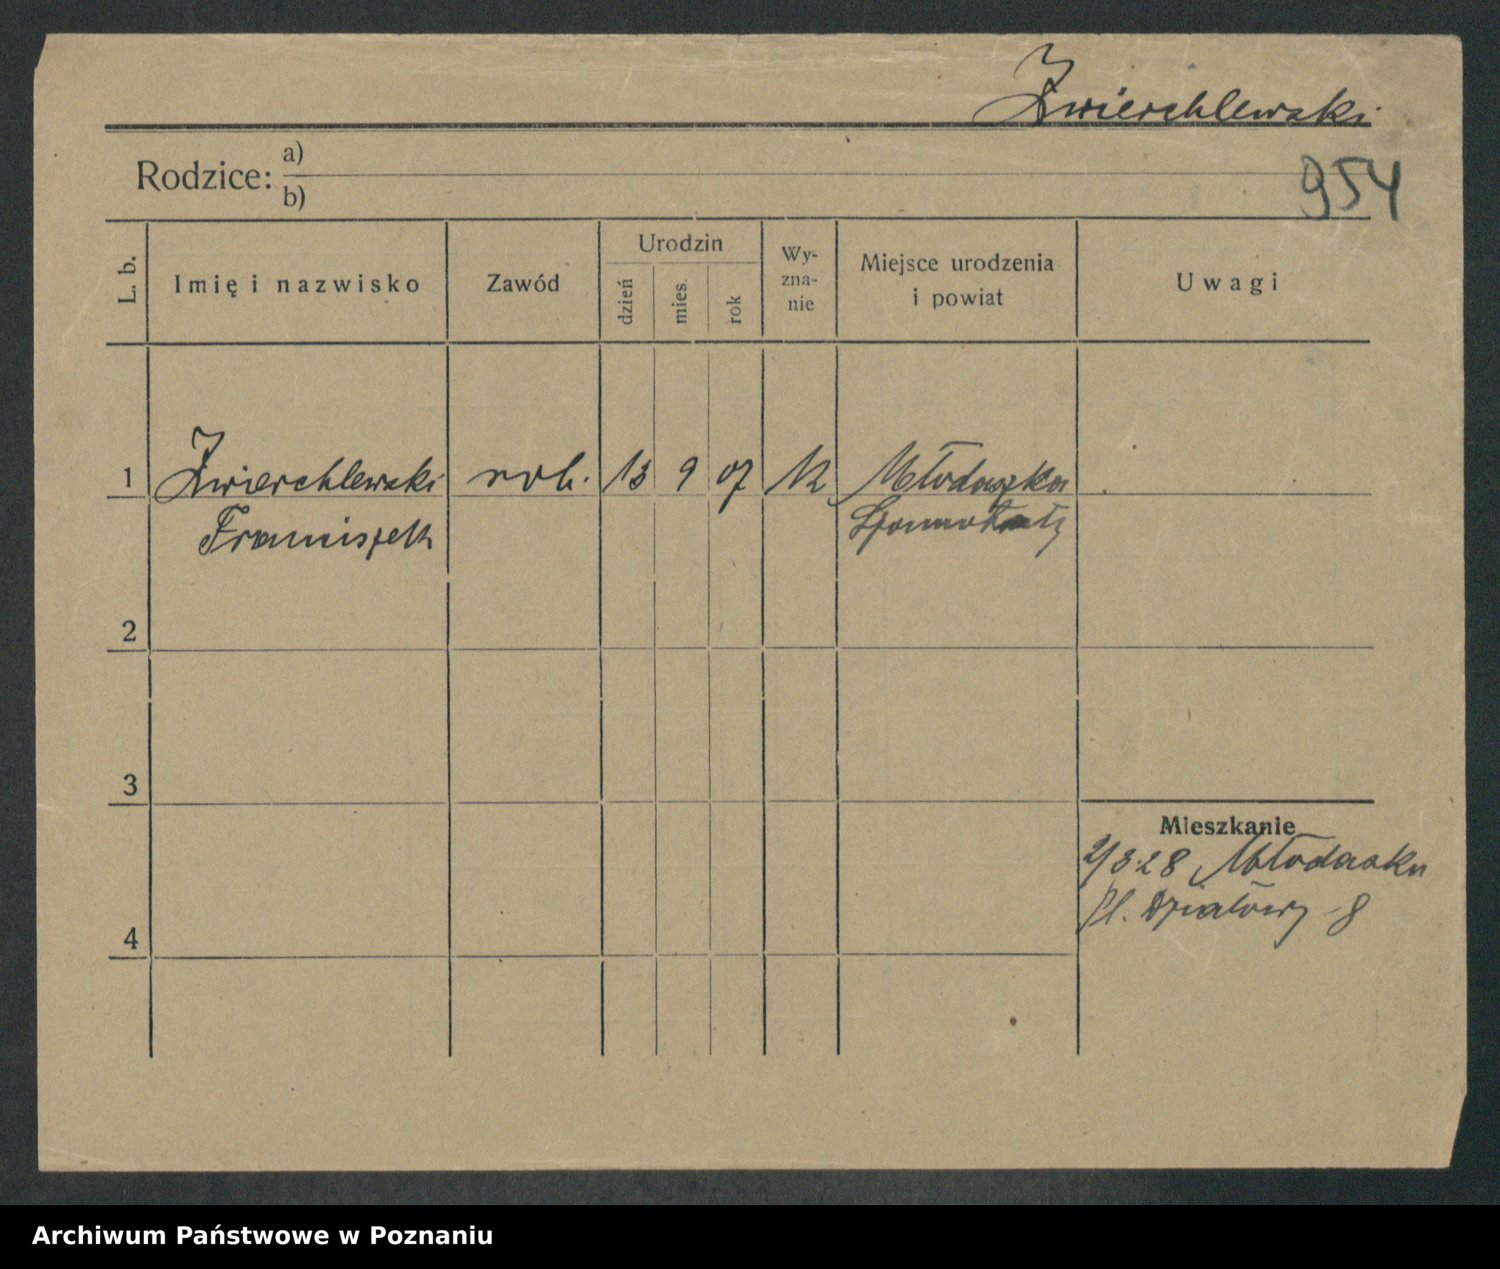 Zwierchlewski
954
Rodzice: a)
b)
L. b.
Imię i nazwisko
Zawód
Urodzin
dzień
mies.
rok
Wy-
zna-
nie
Miejsce urodzenia
i powiat
Uwagi
1 Zwierchlewski rob. 13 9 07 k Młodaszka
Franciszek
2
3
Mieszkanie
2/3.28 Młodaska
Pl. Działowy 8
4
Archiwum Państwowe w Poznaniu